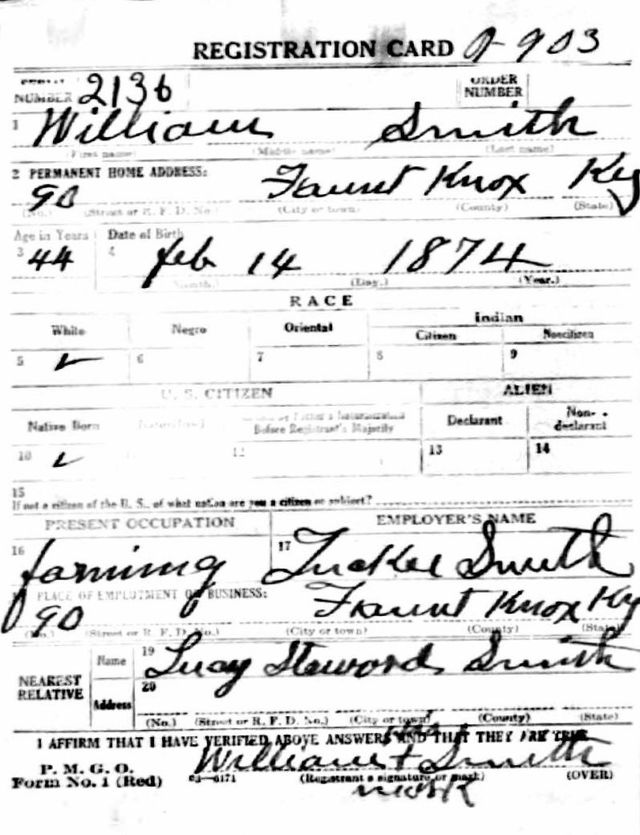 REGISTRATION CARD A-903
SERIAL NUMBER 2136 ORDER NUMBER
1 William Smith
(First name) (Middle name) (Last name)
2 PERMANENT HOME ADDRESS:
90 Faunt Knox Ky
(No.) (Street or R. F. D. No.) (City or town) (County) (State)
Age in Years Date of Birth
3 44 4 Feb 14 1874
(Month.) (Day.) (Year.)
RACE
White Negro Oriental Indian
Citizen Noncitizen
5 ✓ 6 7 8 9
U. S. CITIZEN ALIEN
Native Born Naturalized Citizen by Father's Naturalization Before Registrant's Majority Declarant Non-declarant
10 ✓ 12 13 14
15
If not a citizen of the U. S., of what nation are you a citizen or subject?
PRESENT OCCUPATION EMPLOYER'S NAME
16 farming 17 Smith
PLACE OF EMPLOYMENT OR BUSINESS:
90 Faunt Knox Ky
(No.) (Street or R. F. D. No.) (City or town) (County) (State)
NEAREST RELATIVE Name 19 Lucy Steword Smith
Address 20
(No.) (Street or R. F. D. No.) (City or town) (County) (State)
I AFFIRM THAT I HAVE VERIFIED ABOVE ANSWERS AND THAT THEY ARE TRUE
P. M. G. O.
Form No. 1 (Red) William + Smith
03—6171 (Registrant's signature or mark) (OVER)
mark